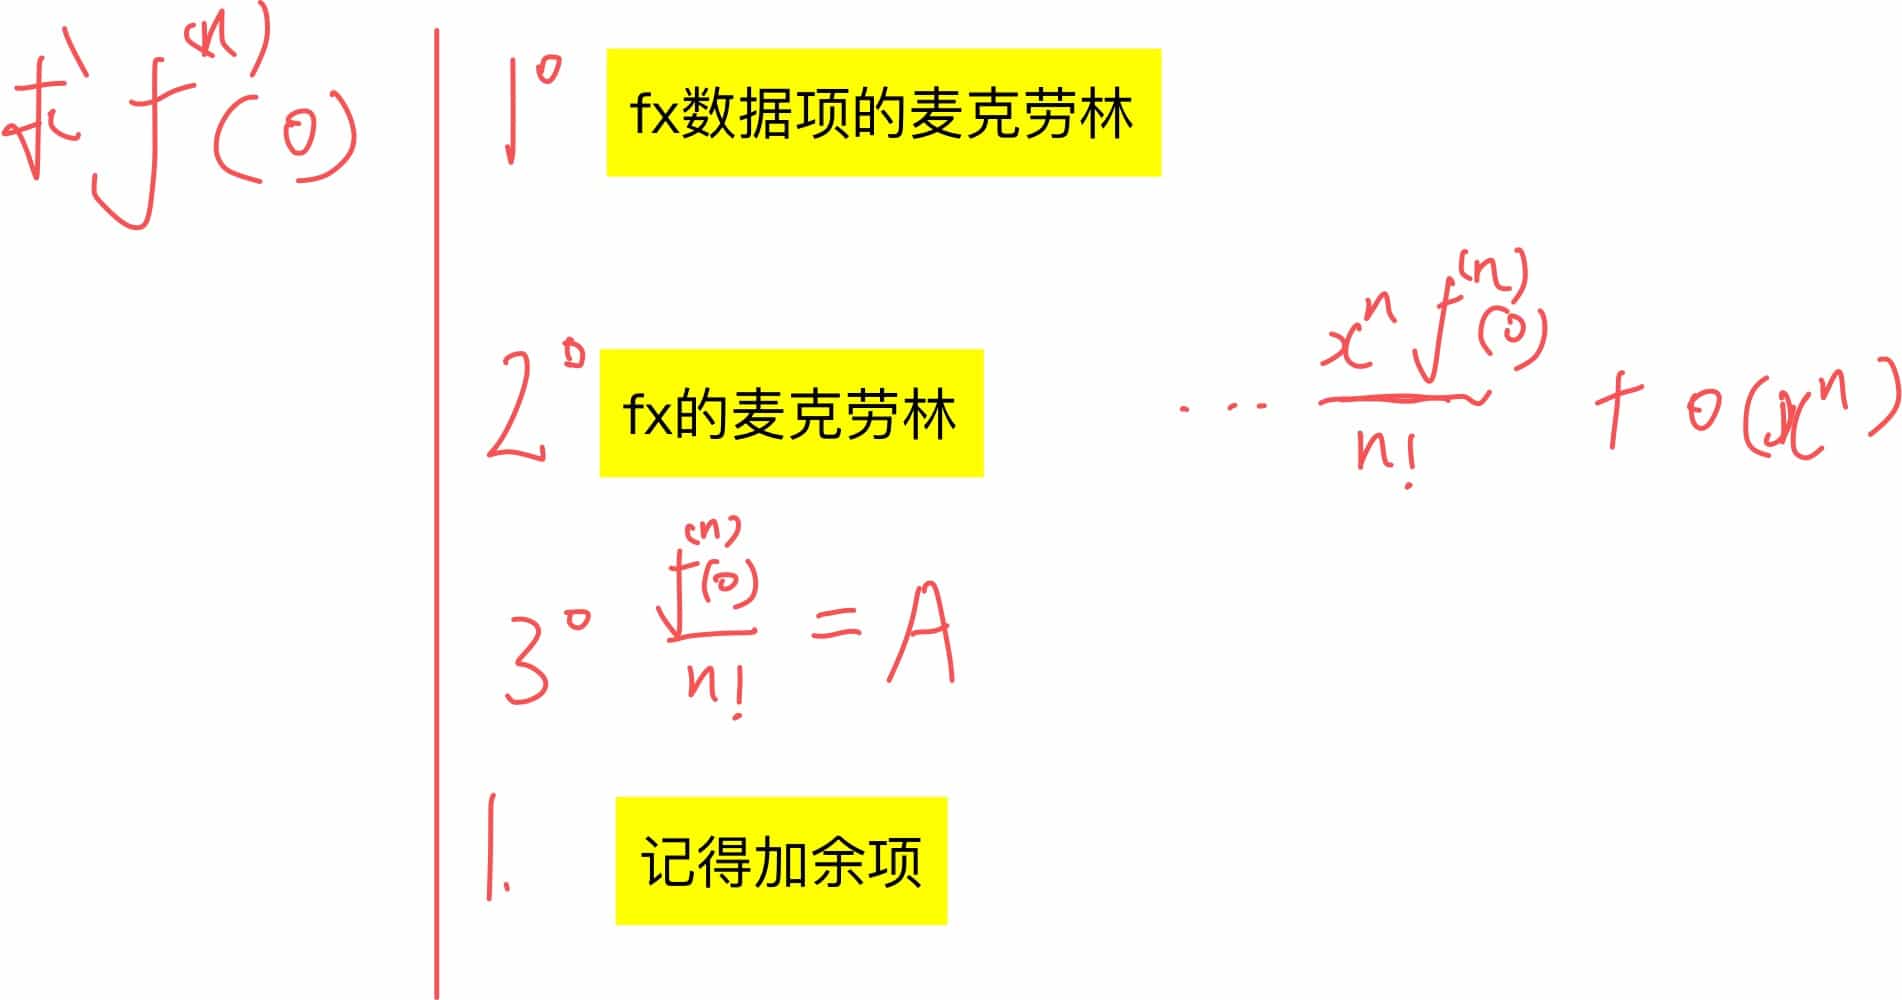 求 f⁽ⁿ⁾(0)
1° fx数据项的麦克劳林
2° fx的麦克劳林 ... xⁿf⁽ⁿ⁾(0)/n! + o(xⁿ)
3° f⁽ⁿ⁾(0)/n! = A
1. 记得加余项